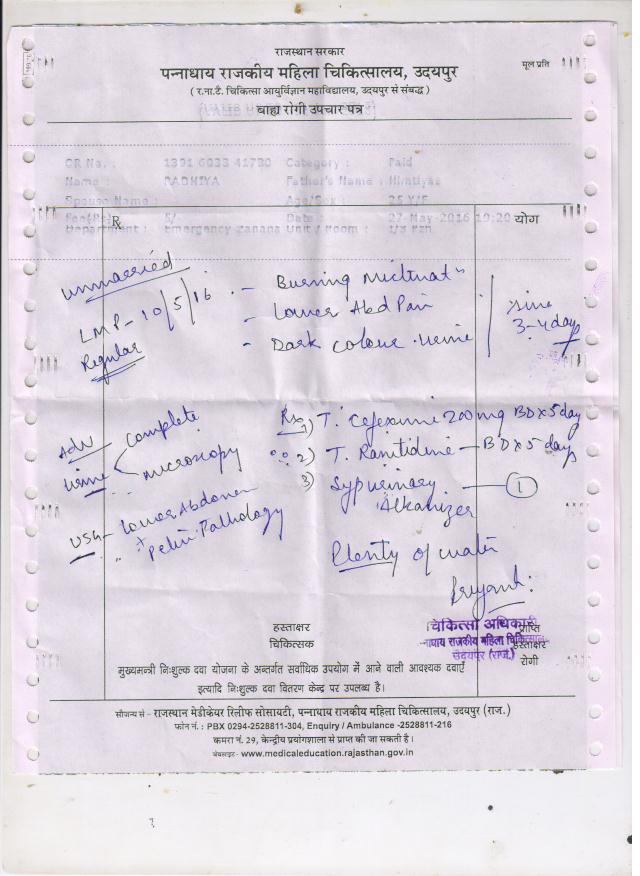 राजस्थान सरकार
पन्नाधाय राजकीय महिला चिकित्सालय, उदयपुर
मूल प्रति
( र.ना.टै. चिकित्सा आयुर्विज्ञान महाविद्यालय, उदयपुर से संबद्ध )
बाह्य रोगी उपचार पत्र
CR No. : 1391 6033 41780 Category : Paid
Name : RADHIYA Father's Name : Himtiyas
Spouse Name : Age/Sex : 25 Y/F
Fee(Rs) 5/- Date : 27-May-2016 19:20
Department : Emergency Zanana Unit / Room :
Rx योग
unmarried
LMP - 10/5/16
Regular
- Burning Micturatn
- Lower Abd Pain
- Dark colour urine
since
3-4 days
Adv
Urine Complete
" microscopy
USG - Lower Abdomen
" + Pelvic Pathology
Rx 1) T. Cefexime 200mg BD x 5 day
2) T. Ranitidine - BD x 5 days
3) Syp urinary Alkanizer - 1
Plenty of water
Priyank
हस्ताक्षर
चिकित्सक
चिकित्सा अधिकारी
राजकीय महिला
उदयपुर (राज.)
हस्ताक्षर
रोगी
मुख्यमन्त्री निःशुल्क दवा योजना के अन्तर्गत सर्वाधिक उपयोग में आने वाली आवश्यक दवाएँ
इत्यादि निःशुल्क दवा वितरण केन्द्र पर उपलब्ध है।
सौजन्य से - राजस्थान मेडीकेयर रिलीफ सोसायटी, पन्नाधाय राजकीय महिला चिकित्सालय, उदयपुर (राज.)
फोन नं. : PBX 0294-2528811-304, Enquiry / Ambulance -2528811-216
कमरा नं. 29, केन्द्रीय प्रयोगशाला से प्राप्त की जा सकती है।
वेबसाइट - www.medicaleducation.rajasthan.gov.in